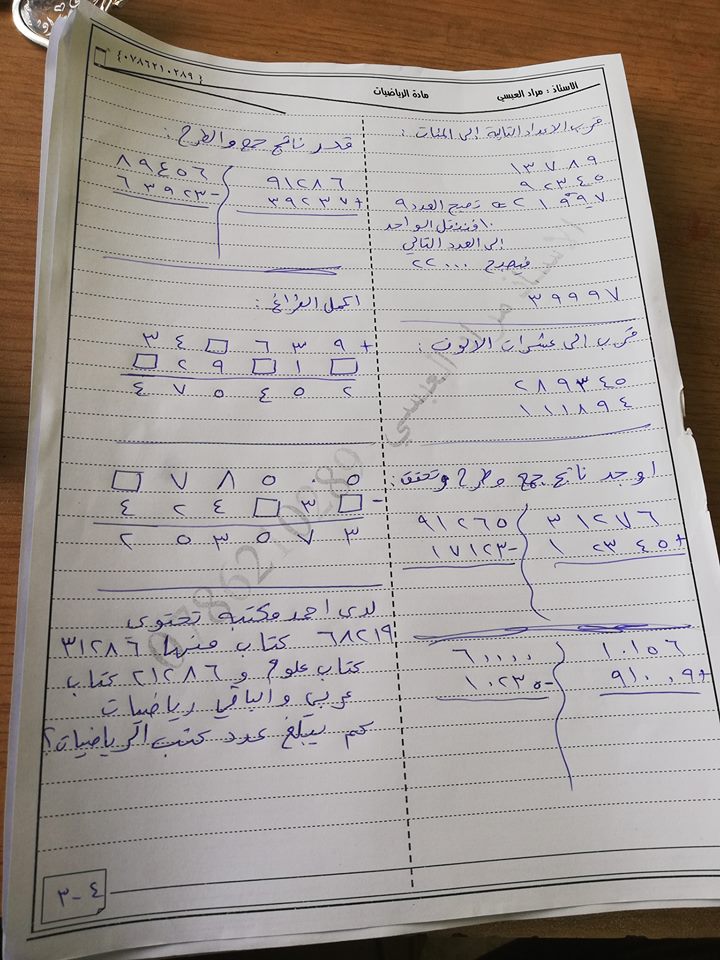 الاستاذ : مراد العبسي
مادة الرياضيات
{٠٧٨٦٢١٠٢٨٩}
قرب الاعداد التالية الى المئات :
١٣٧٨٩
٩٢٣٤٥
٢١٩٩٧ ≈ تصبح العدد ٩
١٠ فننقل الواحد
الى العدد التالي
فيصبح ٢٢٠٠٠
٣٩٩٩٧
قرب الى عشرات الالوف :
٢٨٩٣٤٥
١١١٨٩٤
اوجد ناتج جمع وطرح وتحقق :
٣١٢٧٦
+ ١٢٣٤٥
٩١٢٦٥
- ١٧١٢٣
١٠١٥٦
+ ٩١٠٠٩
٦٠٠٠٠
- ١٠٢٣٥
قدر ناتج جمع والطرح :
٩١٢٨٦
+ ٣٩٢٣٧
٨٩٤٥٦
- ٦٣٩٢٣
اكمل الفراغ :
٣ ٤ □ ٦ ٣ ٩ +
□ ٢ ٩ □ ١ □
٤ ٧ ٥ ٤ ٥ ٢
□ ٧ ٨ ٥ ٠ ٥
٤ ٢ ٤ □ ٣ □ -
٢ ٥ ٣ ٥ ٧ ٣
لدى احمد مكتبة تحتوي
٦٨٢١٩ كتاب منها ٣١٢٨٦
كتاب علوم و ٢١٢٨٦ كتاب
عربي والباقي رياضيات
كم يبلغ عدد كتب الرياضيات؟
٣-٤
الأستاذ مراد العبسي 0786210289